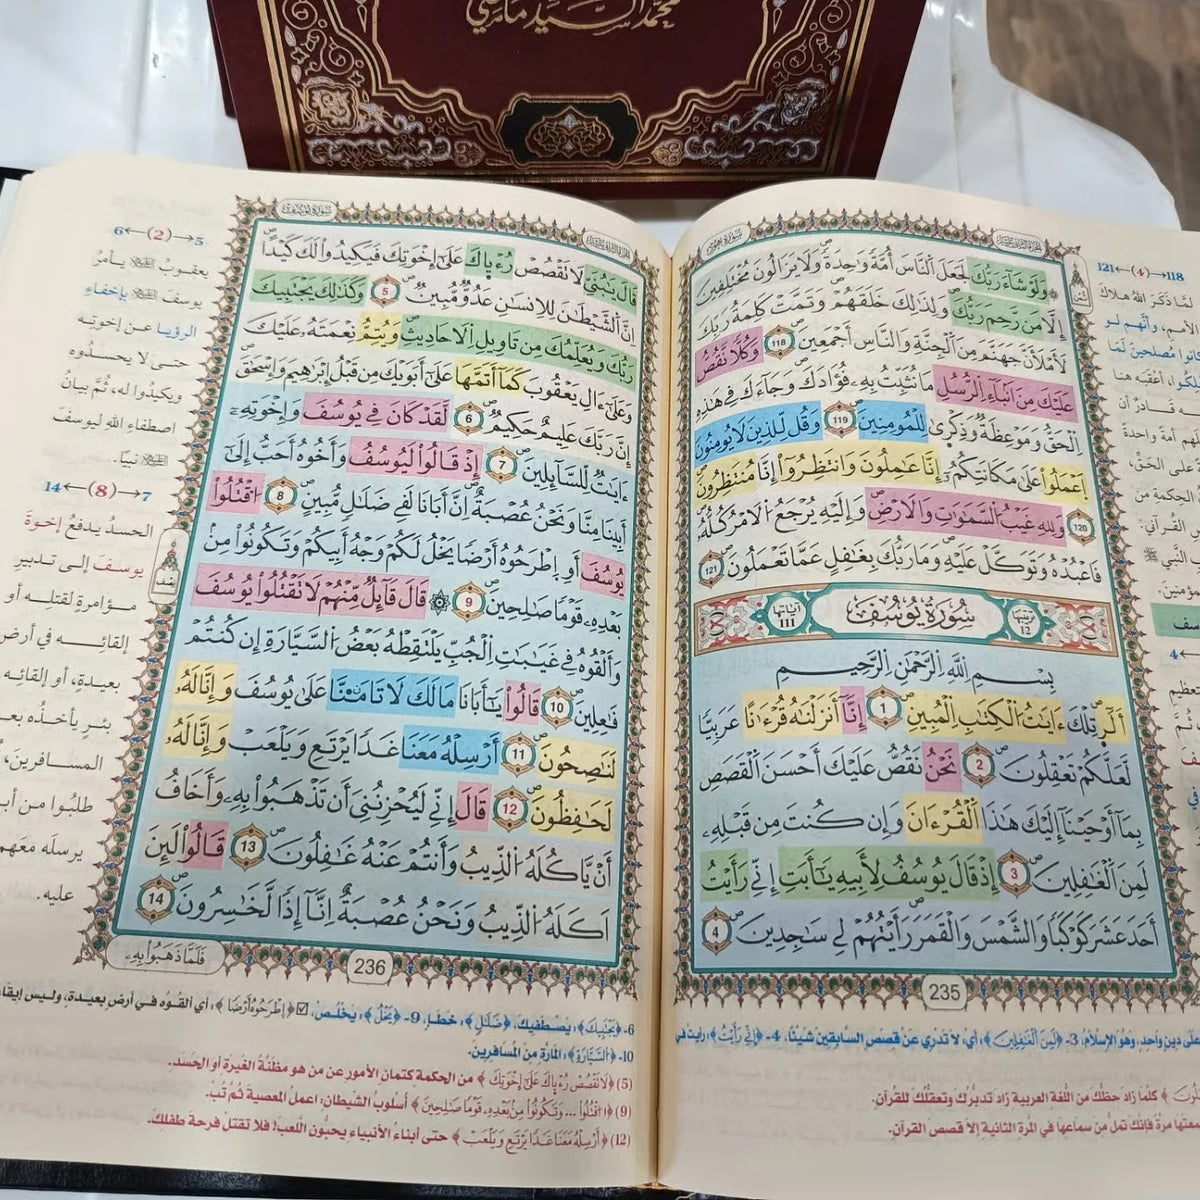 محمد السيد ماضي
سُورَةُ هُودٍ
وَلَوْ شَآءَ رَبُّكَ لَجَعَلَ النَّاسَ أُمَّةً وَاحِدَةً وَلَا يَزَالُونَ مُخْتَلِفِينَ
إِلَّا مَن رَّحِمَ رَبُّكَ وَلِذَٰلِكَ خَلَقَهُمْ وَتَمَّتْ كَلِمَةُ رَبِّكَ
لَأَمْلَأَنَّ جَهَنَّمَ مِنَ الْجِنَّةِ وَالنَّاسِ أَجْمَعِينَ 118 وَكُلًّا نَّقُصُّ
عَلَيْكَ مِنْ أَنۢبَآءِ الرُّسُلِ مَا نُثَبِّتُ بِهِۦ فُؤَادَكَ وَجَآءَكَ فِي هَٰذِهِ
الْحَقُّ وَمَوْعِظَةٌ وَذِكْرَىٰ لِلْمُومِنِينَ 119 وَقُل لِّلَّذِينَ لَا يُومِنُونَ
اَعْمَلُواْ عَلَىٰ مَكَانَتِكُمْ إِنَّا عَٰمِلُونَ وَانتَظِرُوٓاْ إِنَّا مُنتَظِرُونَ
120 وَلِلهِ غَيْبُ السَّمَٰوَٰتِ وَالَارْضِ وَإِلَيْهِ يُرْجَعُ الَامْرُ كُلُّهُۥ
فَاعْبُدْهُ وَتَوَكَّلْ عَلَيْهِ وَمَا رَبُّكَ بِغَٰفِلٍ عَمَّا تَعْمَلُونَ 121
ترتيبها 12 سُورَةُ يُوسُفَ آياتها 111
بِسْمِ اللَّهِ الرَّحْمَٰنِ الرَّحِيمِ
أَلَٓر تِلْكَ ءَايَٰتُ الْكِتَٰبِ الْمُبِينِ 1 إِنَّآ أَنزَلْنَٰهُ قُرْءَٰنًا عَرَبِيًّا
لَّعَلَّكُمْ تَعْقِلُونَ 2 نَحْنُ نَقُصُّ عَلَيْكَ أَحْسَنَ الْقَصَصِ
بِمَآ أَوْحَيْنَآ إِلَيْكَ هَٰذَا الْقُرْءَانَ وَإِن كُنتَ مِن قَبْلِهِۦ
لَمِنَ الْغَٰفِلِينَ 3 إِذْ قَالَ يُوسُفُ لِأَبِيهِ يَٰٓأَبَتِ إِنِّي رَأَيْتُ
أَحَدَ عَشَرَ كَوْكَبًا وَالشَّمْسَ وَالْقَمَرَ رَأَيْتُهُمْ لِي سَٰجِدِينَ 4
235
121←(4)→118
لمَّا ذكَرَ اللهُ هلاكَ
وأنَّهم لو
مصلحينَ لَمَا
أعقبَه هنا
قادرٌ أن
أمة واحدة
على الحق،
الحكمة من
القرآني:
النبي ﷺ
على دينٍ واحدٍ، وهُو الإسلامُ، 3- ﴿لَمِنَ الْغَٰفِلِينَ﴾: أي: لا تدري عن قصصِ السابقينَ شيئًا، 4- ﴿إِنِّي رَأَيْتُ﴾: رأيت في
﴾ كلَّما زادَ حظُّكَ من اللُّغة العربية زادَ تدبُّرُك وتعقُّلُكَ للقرآنِ.
مرةً فإنك تملُّ من سماعها في المرة الثانية إلا قصص القرآن.
سُورَةُ يُوسُفَ
قَالَ يَٰبُنَيِّ لَا تَقْصُصْ رُءْيَاكَ عَلَىٰٓ إِخْوَتِكَ فَيَكِيدُواْ لَكَ كَيْدًا
اِنَّ الشَّيْطَٰنَ لِلِانسَٰنِ عَدُوٌّ مُّبِينٌ 5 وَكَذَٰلِكَ يَجْتَبِيكَ
رَبُّكَ وَيُعَلِّمُكَ مِن تَاوِيلِ الَاحَادِيثِ وَيُتِمُّ نِعْمَتَهُۥ عَلَيْكَ
وَعَلَىٰٓ ءَالِ يَعْقُوبَ كَمَآ أَتَمَّهَا عَلَىٰٓ أَبَوَيْكَ مِن قَبْلُ إِبْرَٰهِيمَ وَإِسْحَٰقَ
إِنَّ رَبَّكَ عَلِيمٌ حَكِيمٌ 6 لَّقَدْ كَانَ فِي يُوسُفَ وَإِخْوَتِهِۦٓ
ءَايَٰتٌ لِّلسَّآئِلِينَ 7 إِذْ قَالُواْ لَيُوسُفُ وَأَخُوهُ أَحَبُّ إِلَىٰٓ
أَبِينَا مِنَّا وَنَحْنُ عُصْبَةٌ اِنَّ أَبَانَا لَفِي ضَلَٰلٍ مُّبِينٍ 8 اُقْتُلُواْ
يُوسُفَ أَوِ اِطْرَحُوهُ أَرْضًا يَخْلُ لَكُمْ وَجْهُ أَبِيكُمْ وَتَكُونُواْ مِنۢ
بَعْدِهِۦ قَوْمًا صَٰلِحِينَ 9 قَالَ قَآئِلٌ مِّنْهُمْ لَا تَقْتُلُواْ يُوسُفَ
وَأَلْقُوهُ فِي غَيَٰبَٰتِ الْجُبِّ يَلْتَقِطْهُ بَعْضُ السَّيَّارَةِ إِن كُنتُمْ
فَٰعِلِينَ 10 قَالُواْ يَٰٓأَبَانَا مَالَكَ لَا تَامَ۬نَّا عَلَىٰ يُوسُفَ وَإِنَّا لَهُۥ
لَنَٰصِحُونَ 11 أَرْسِلْهُ مَعَنَا غَدًا يَرْتَعِ وَيَلْعَبْ وَإِنَّا لَهُۥ
لَحَٰفِظُونَ 12 قَالَ إِنِّي لَيُحْزِنُنِيَ أَن تَذْهَبُواْ بِهِۦ وَأَخَافُ
أَنْ يَّاكُلَهُ الذِّيبُ وَأَنتُمْ عَنْهُ غَٰفِلُونَ 13 قَالُواْ لَئِنَ
اَكَلَهُ الذِّيبُ وَنَحْنُ عُصْبَةٌ اِنَّآ إِذًا لَّخَٰسِرُونَ 14
236
فَلَمَّا ذَهَبُواْ بِهِۦ
6←(2)→5
يعقوبُ يأمرُ
يوسفَ بإخفاءِ
الرؤيا عن إخوته
حتى لا يحسدُوه
ويكيدُوا له، ثُمَّ بيانُ
اصطفاءِ اللهِ ليوسفَ
نبيًا.
14←(8)→7
الحسدُ يدفعُ إخوةَ
يوسفَ إلى تدبيرِ
مؤامرةٍ لقتلِه أو
إلقائِه في أرضٍ
بعيدةٍ، أو إلقائِه
بئرٍ يأخذُه بعضُ
المسافرين،
طلبُوا من أبيهم
يرسلَه معهم
عليه.
6- ﴿يَجْتَبِيكَ﴾: يصطفيك، ﴿ضَلَٰلٍ﴾: خطأ، 9- ﴿يَخْلُ﴾: يخلص، ☑ ﴿اِطْرَحُوهُ أَرْضًا﴾: أي ألقوه في أرضٍ بعيدةٍ، وليس
10- ﴿السَّيَّارَةِ﴾: المارَّة من المسافرين.
(5) ﴿لَا تَقْصُصْ رُءْيَاكَ عَلَىٰٓ إِخْوَتِكَ﴾ من الحكمة كتمان الأمور عن من هو مظنَّة الغيرة أو الحسد.
(9) ﴿اُقْتُلُواْ ... وَتَكُونُواْ مِنۢ بَعْدِهِۦ قَوْمًا صَٰلِحِينَ﴾ أسلوبُ الشيطان: اعمل المعصية ثُمَّ تُبْ.
(12) ﴿أَرْسِلْهُ مَعَنَا غَدًا يَرْتَعِ وَيَلْعَبْ﴾ حتى أبناءُ الأنبياء يحبُّون اللَّعبَ! فلا تقتلْ فرحةَ طفلكَ.